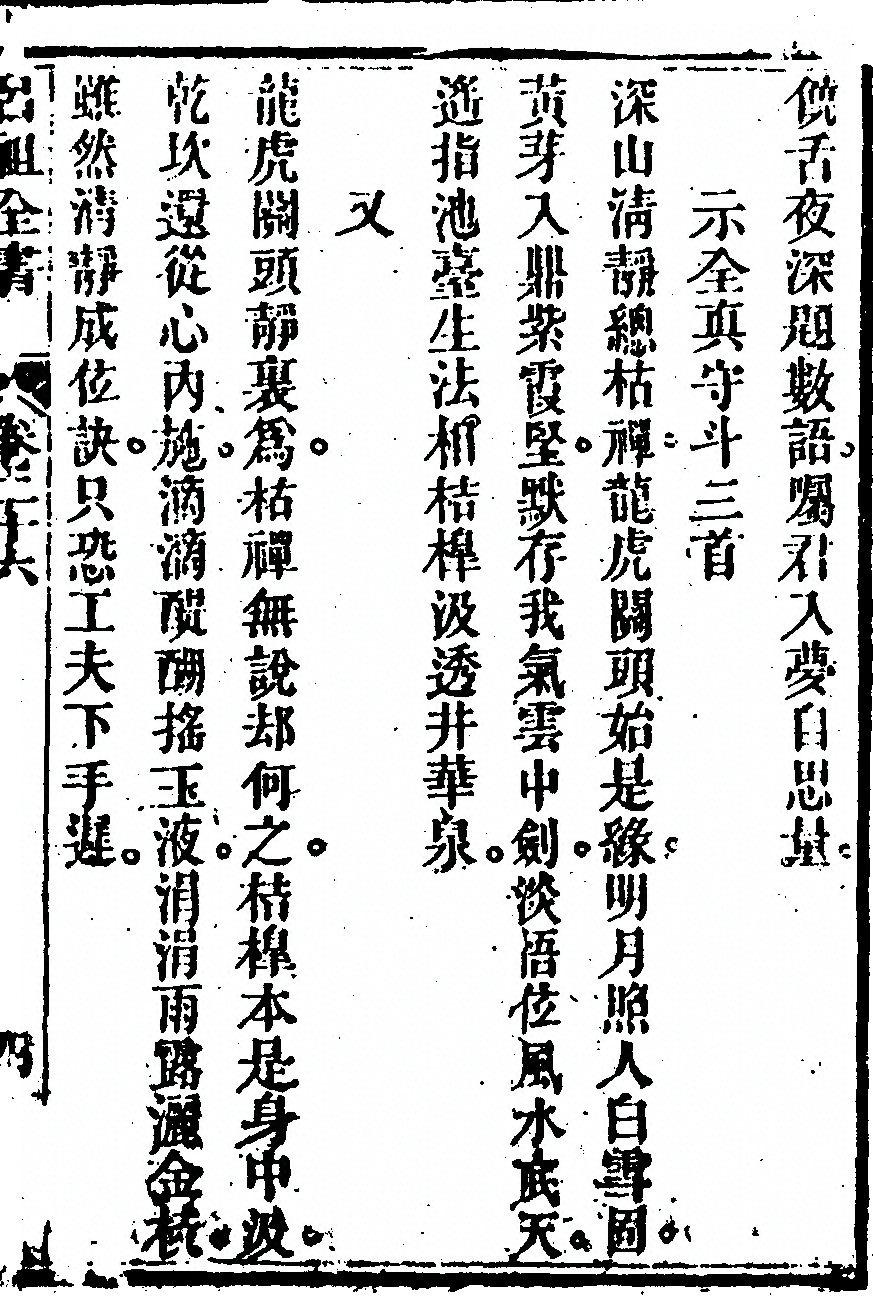 饒舌夜深題數語。囑君入夢自思量。
示全真守斗三首
深山清靜總枯禪。龍虎關頭始是緣。明月照人白雪固。
黃芽入鼎紫霞堅。默存我氣雲中劍。淡悟位風水底天。
遙指池臺生法相。桔槔汲透井華泉。
又
龍虎關頭靜裏爲。枯禪無說却何之。桔槔本是身中汲。
乾坎還從心內施。滴滴醍醐搖玉液。涓涓雨露灑金枝。
雖然清靜成位訣。只恐工夫下手遲。
呂祖全書 卷二十六 四